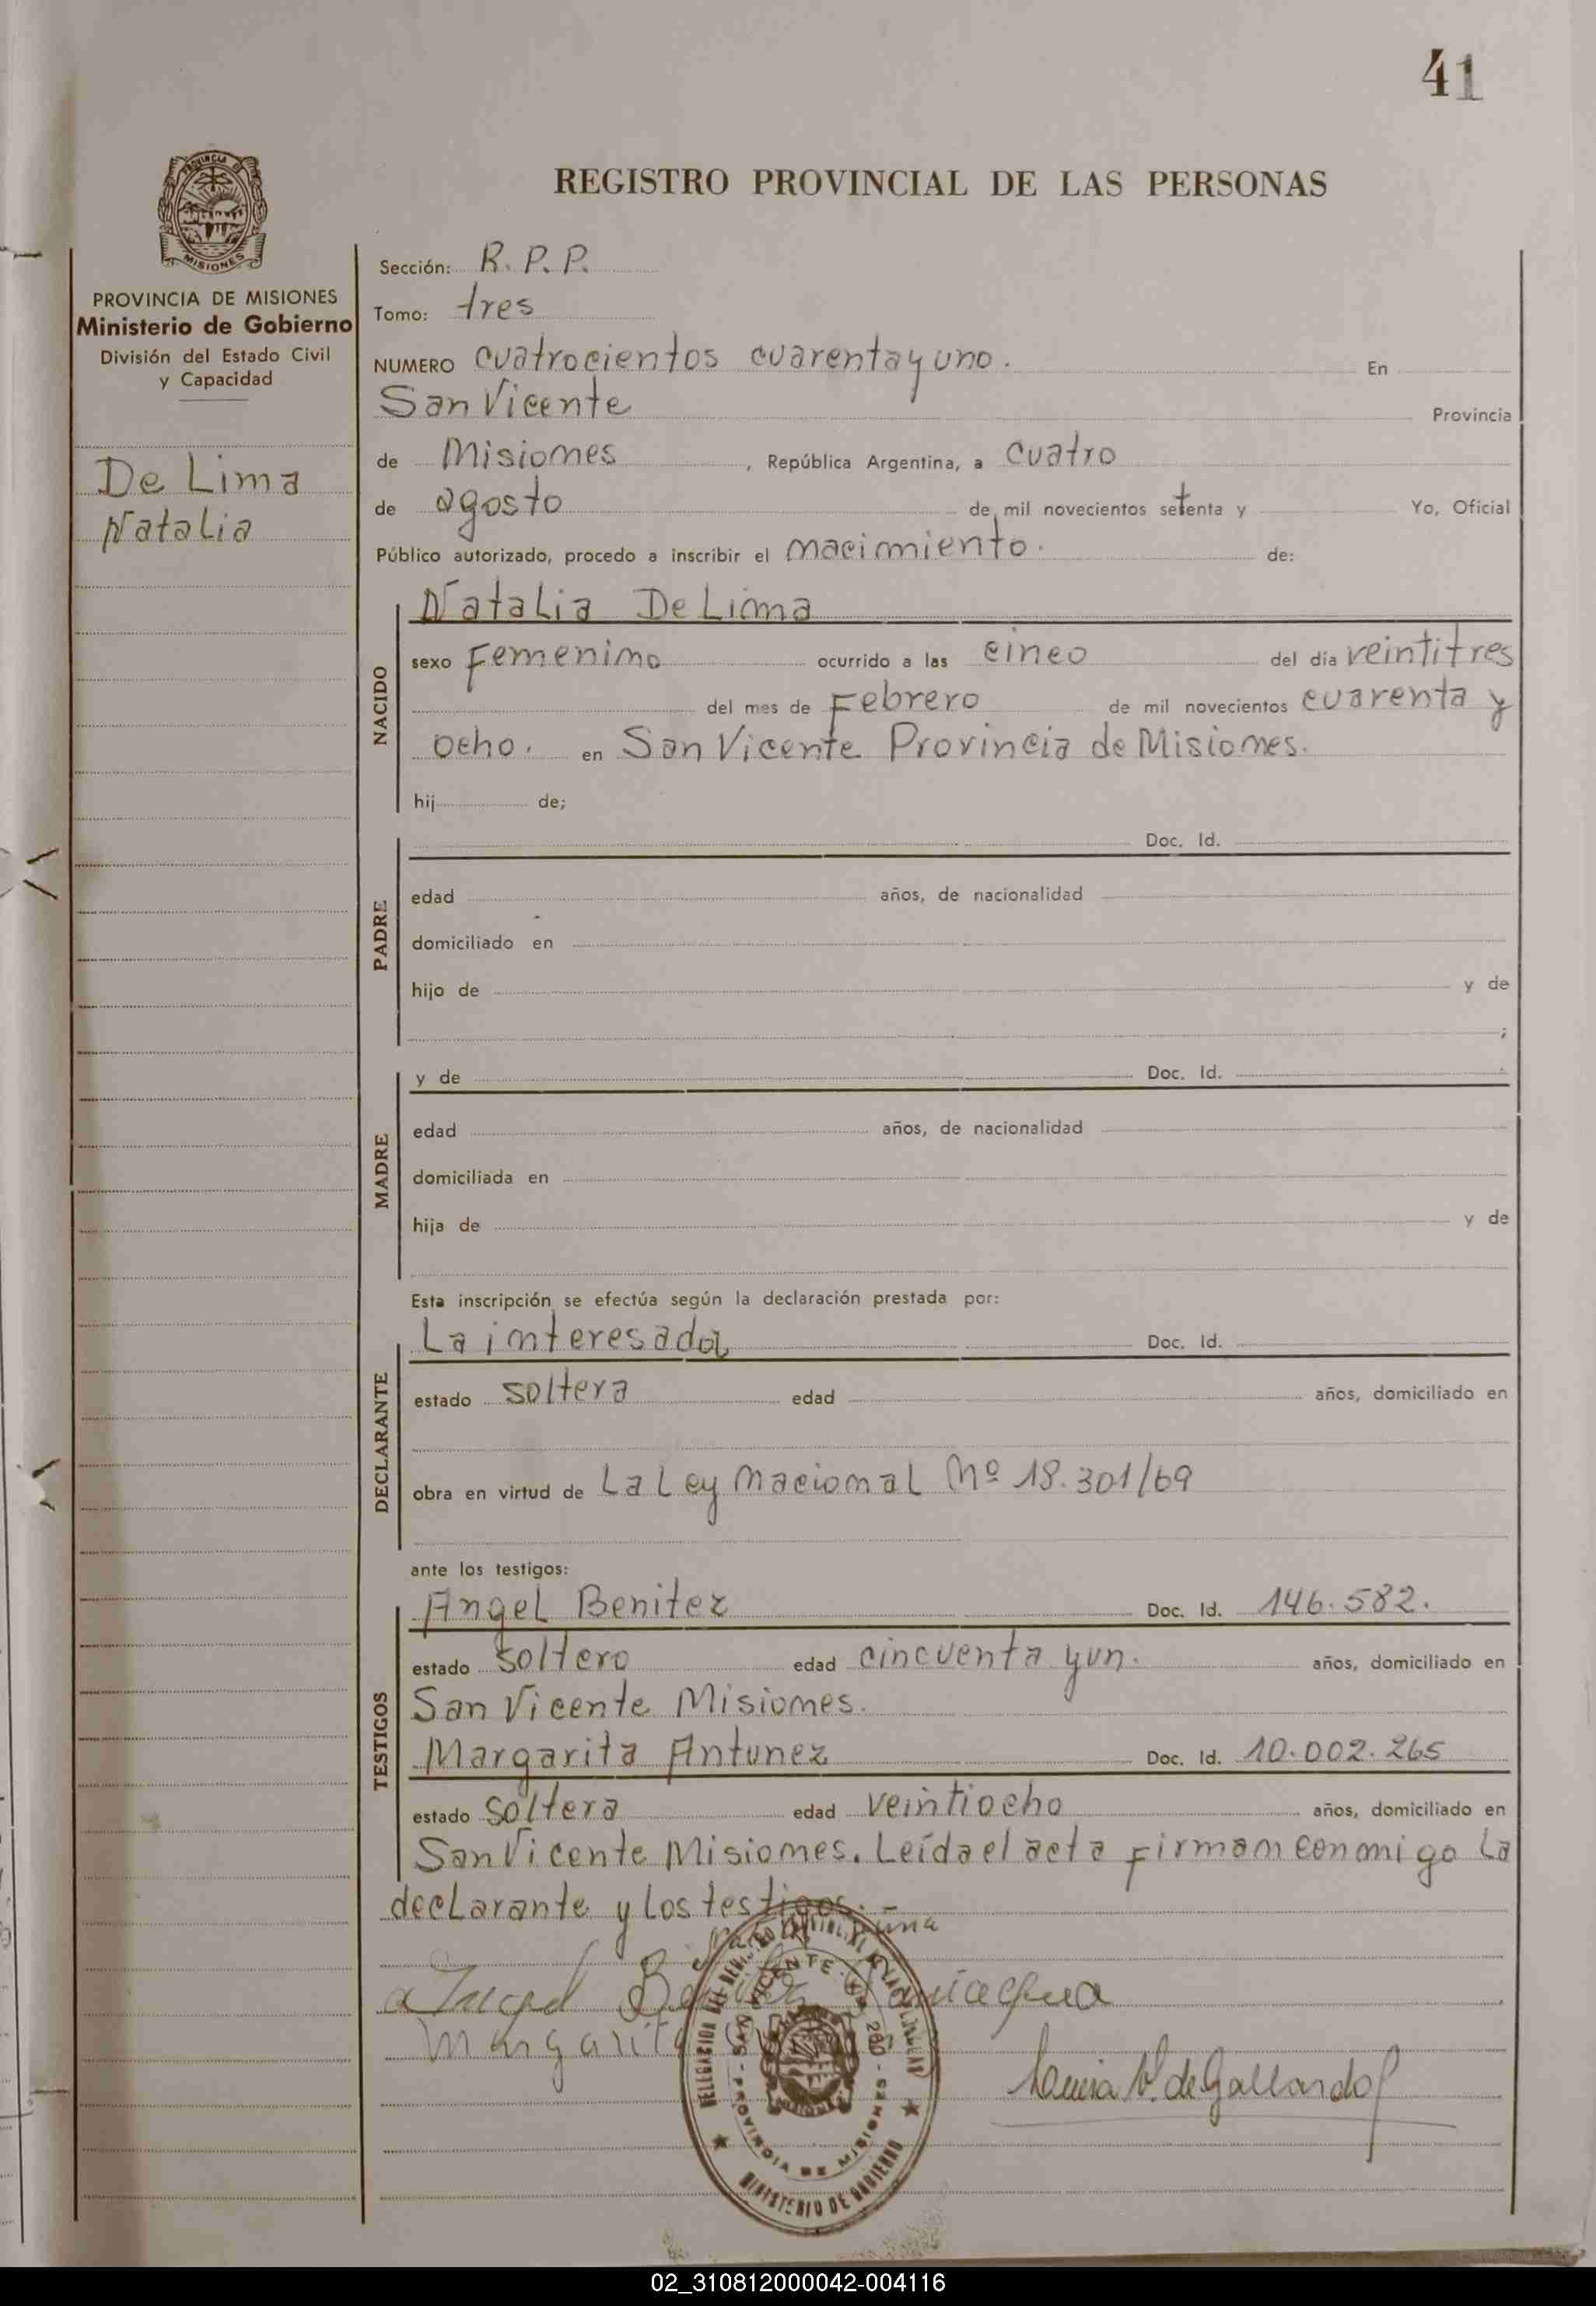 41
REGISTRO PROVINCIAL DE LAS PERSONAS
PROVINCIA DE MISIONES
Ministerio de Gobierno
División del Estado Civil
y Capacidad
De Lima
Natalia
Sección: R. P. P.
Tomo: tres
NUMERO cuatrocientos cuarenta y uno. En
San Vicente Provincia
de Misiones, República Argentina, a cuatro
de agosto de mil novecientos setenta y Yo, Oficial
Público autorizado, procedo a inscribir el nacimiento. de:
NACIDO
Natalia De Lima
sexo Femenino ocurrido a las cinco del día veintitres
del mes de Febrero de mil novecientos cuarenta y
ocho. en San Vicente Provincia de Misiones.
hij de;
PADRE
Doc. Id.
edad años, de nacionalidad
domiciliado en
hijo de y de
;
MADRE
y de Doc. Id.
edad años, de nacionalidad
domiciliada en
hija de y de
Esta inscripción se efectúa según la declaración prestada por:
DECLARANTE
La interesada Doc. Id.
estado soltera edad años, domiciliado en
obra en virtud de La Ley Nacional Nº 18.301/69
ante los testigos:
TESTIGOS
Angel Benitez Doc. Id. 146.582.
estado soltero edad cincuenta y un. años, domiciliado en
San Vicente Misiones.
Margarita Antunez Doc. Id. 10.002.265
estado soltera edad veintiocho años, domiciliado en
San Vicente Misiones. Leída el acta firman conmigo la
declarante y los testigos.
Margarita
de Gallardo
SAN VICENTE
PROVINCIA DE MISIONES
MINISTERIO DE GOBIERNO
02_310812000042-004116